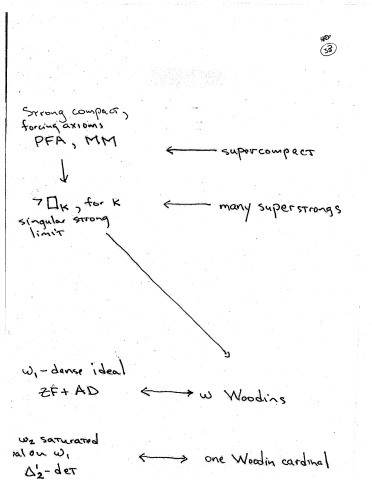 33
Strong compact,
forcing axioms
PFA, MM ← supercompact
↓
¬□κ, for κ ← many superstrongs
singular strong
limit
ω₁-dense ideal
ZF+AD ↔ ω Woodins
ω₂ saturated
on ω₁
Δ¹₂-det ↔ one Woodin cardinal